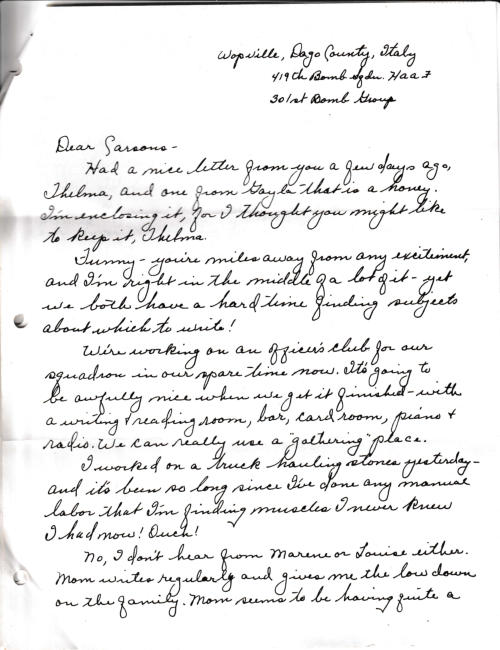 Wopville, Dago County, Italy
419th Bomb Sqdn. H a a F
301st Bomb Group
Dear Parsons-
Had a nice letter from you a few days ago,
Thelma, and one from Gayla that is a honey.
I'm enclosing it, for I thought you might like
to keep it, Thelma.
Funny- you're miles away from any excitement,
and I'm right in the middle of a lot of it- yet
we both have a hard time finding subjects
about which to write!
We're working on an officer's club for our
squadron in our spare time now. It's going to
be awfully nice when we get it finished- with
a writing & reading room, bar, card room, piano &
radio. We can really use a "gathering" place.
I worked on a truck hauling stones yesterday-
and it's been so long since I've done any manual
labor that I'm finding muscles I never knew
I had now! Ouch!
No, I don't hear from Marene or Louise either.
Mom writes regularly and gives me the low down
on the family. Mom seems to be having quite a